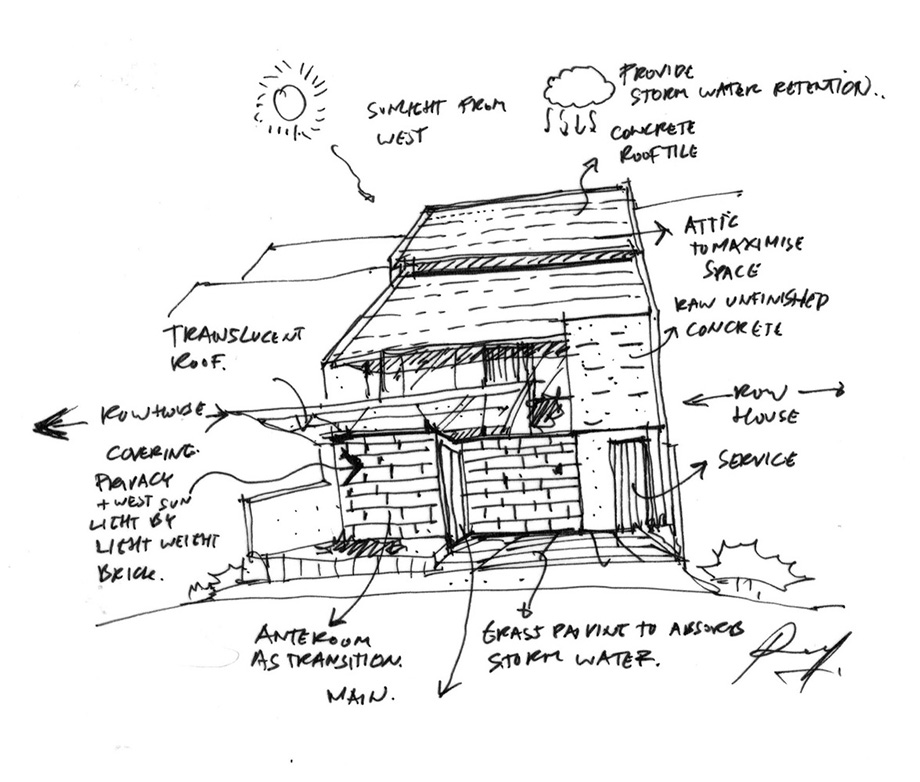 SUNLIGHT FROM
WEST
PROVIDE
STORM WATER RETENTION..
CONCRETE
ROOFTILE
ATTIC
TO MAXIMISE
SPACE
RAW UNFINISHED
CONCRETE
TRANSLUCENT
ROOF.
ROWHOUSE
ROW
HOUSE
COVERING.
PRIVACY
+ WEST SUN
LIGHT BY
LIGHT WEIGHT
BRICK.
SERVICE
ANTEROOM
AS TRANSITION.
MAIN.
GRASS PAVING TO ABSORB
STORM WATER.